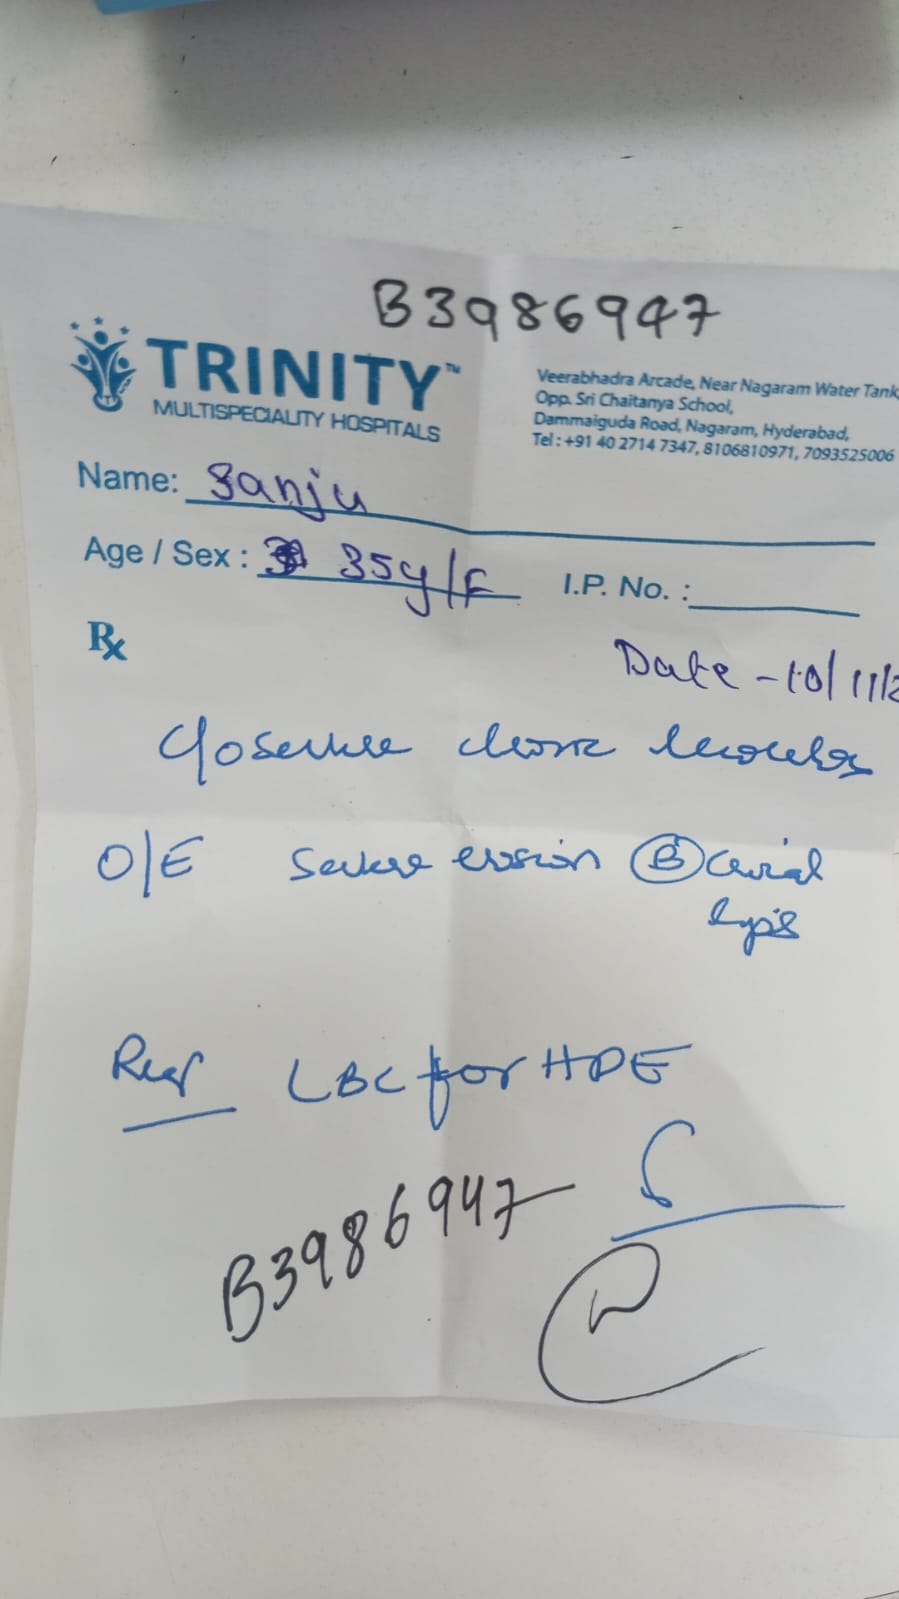 B3986947
TRINITY™
MULTISPECIALITY HOSPITALS
Veerabhadra Arcade, Near Nagaram Water Tank,
Opp. Sri Chaitanya School,
Dammaiguda Road, Nagaram, Hyderabad,
Tel : +91 40 2714 7347, 8106810971, 7093525006
Name: Sanju
Age / Sex : 35y/F I.P. No. :
Rx
Date - 10/11/2
C/o severe
O/E severe erosion Ⓑ
lips
Req LBC for HPE
B3986947